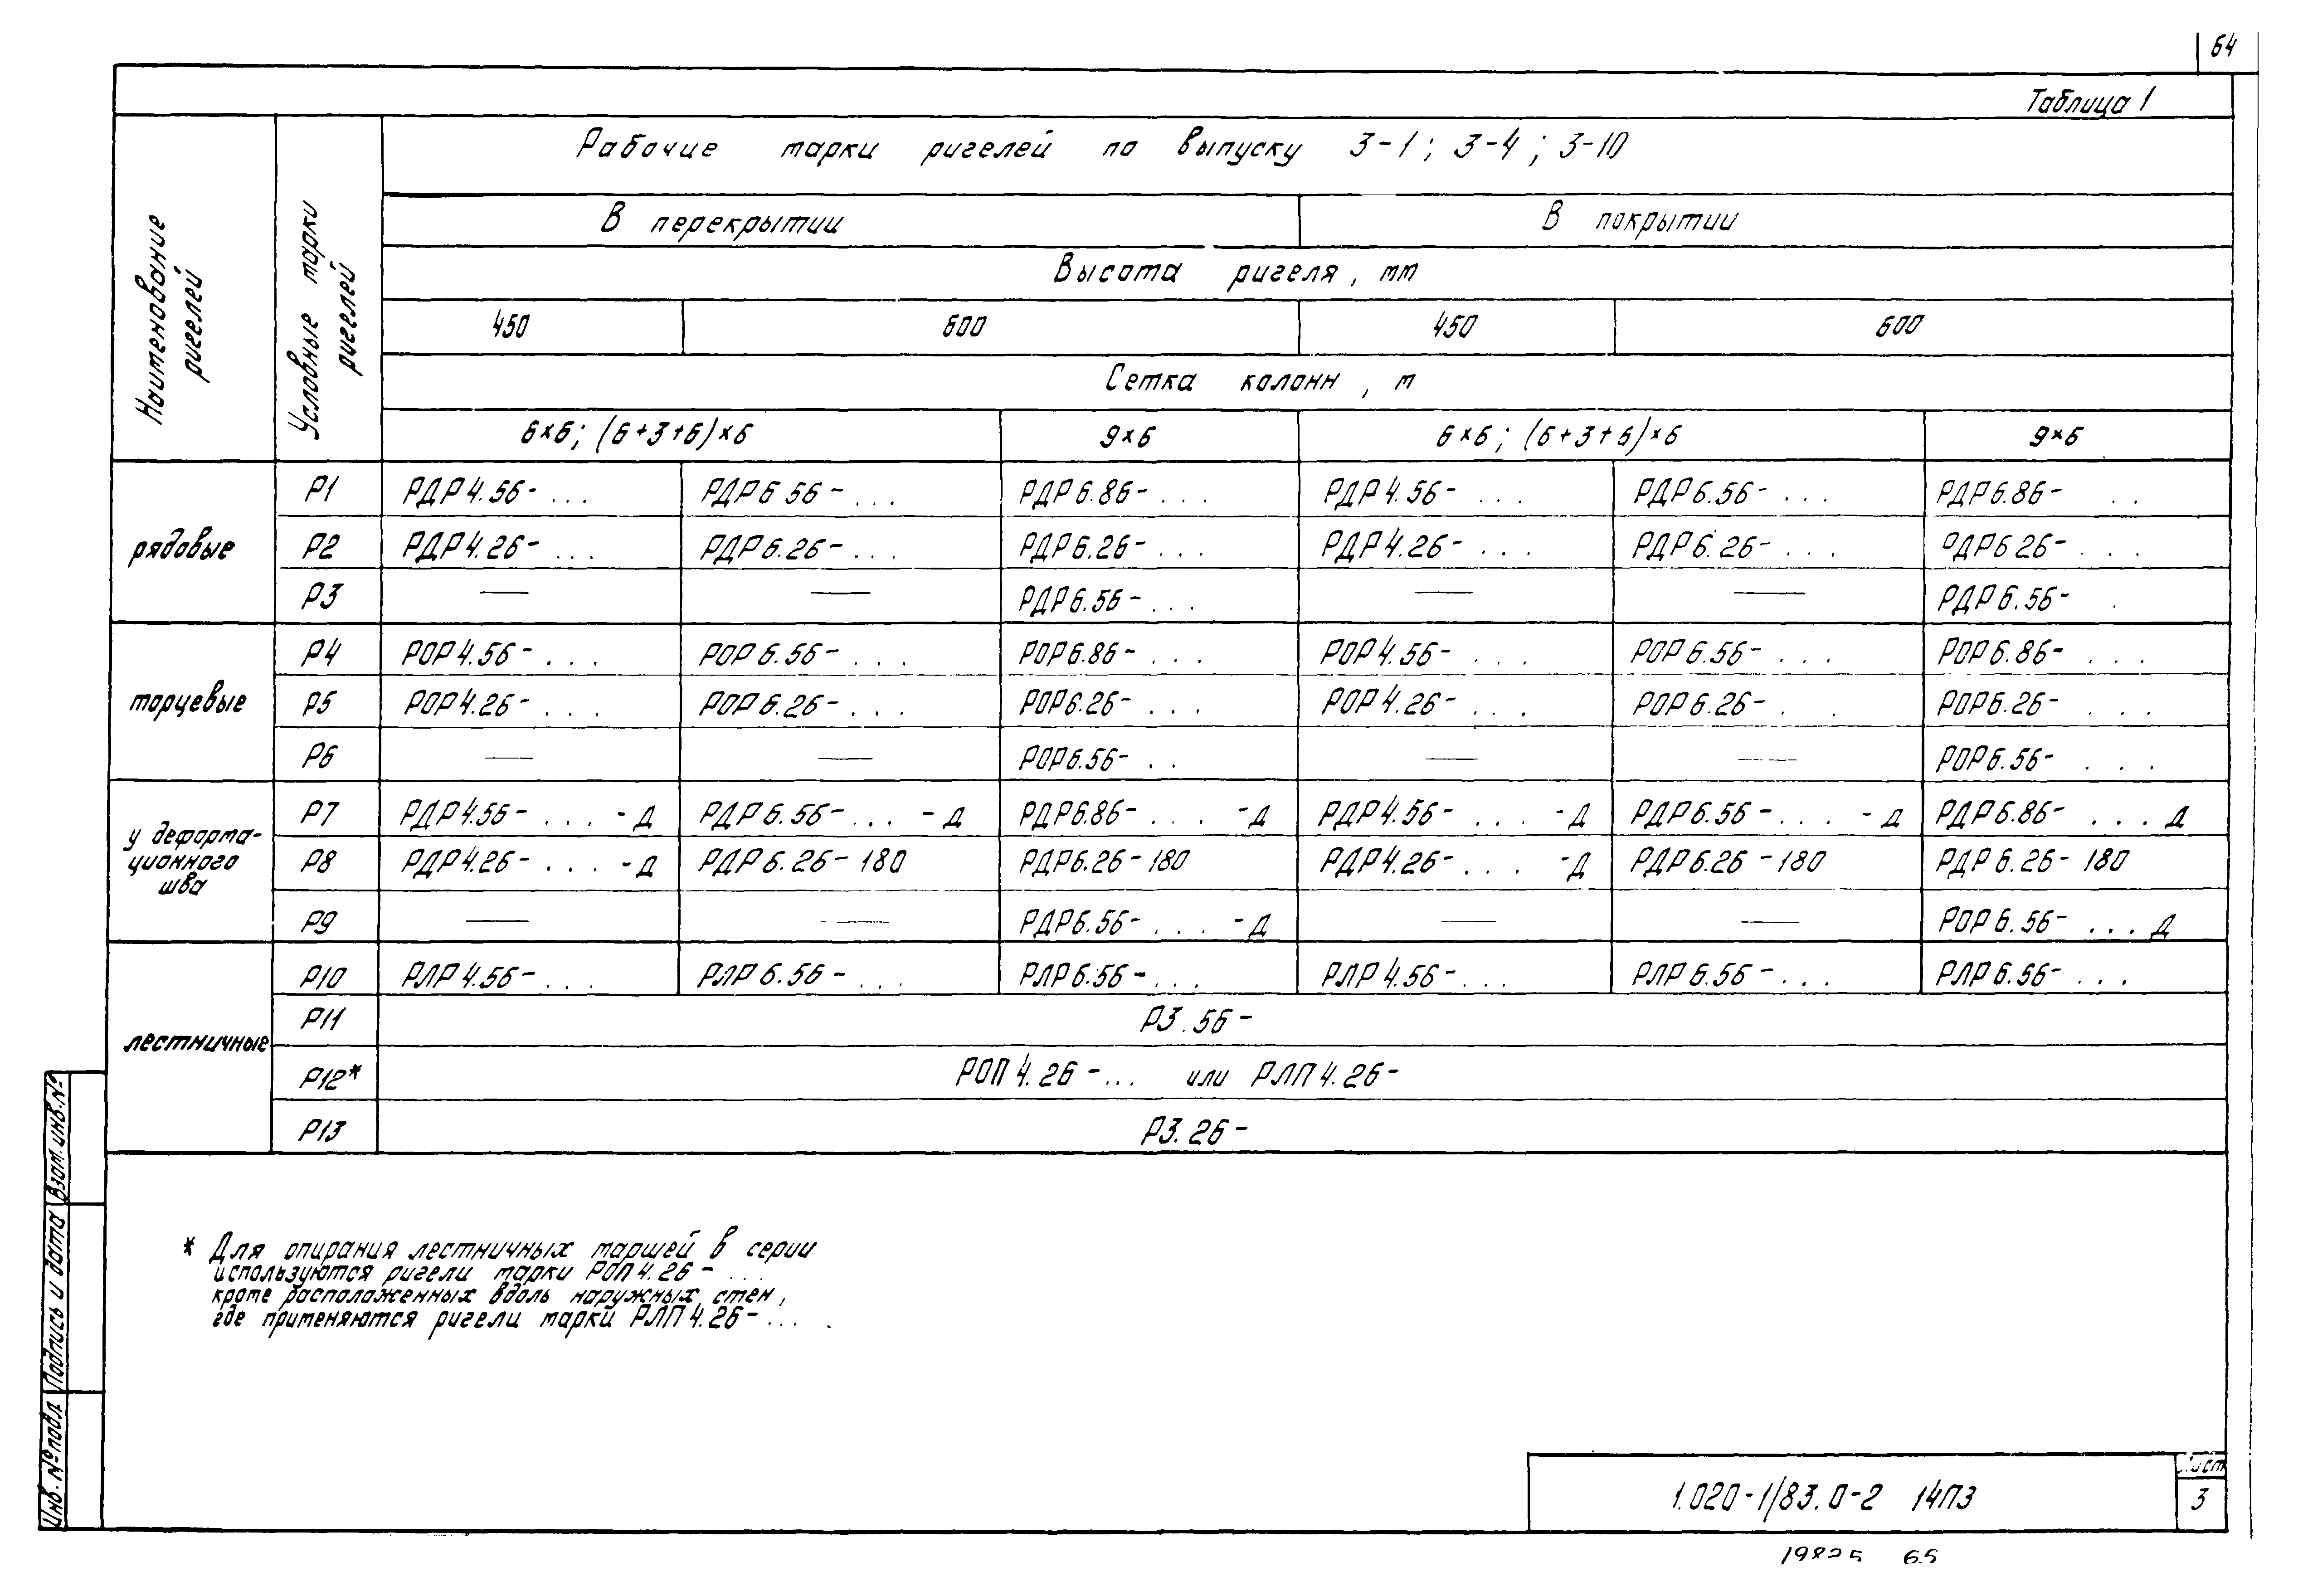 64
Таблица 1
Наименование ригелей
Условные марки ригелей
Рабочие марки ригелей по выпуску 3-1; 3-4; 3-10
В перекрытии В покрытии
Высота ригеля, мм
450 600 450 600
Сетка колонн, м
6×6; (6+3+6)×6 9×6 6×6; (6+3+6)×6 9×6
рядовые
Р1 РДР4.56-... РДР6 56-... РДР6.86-... РДР4.56-... РДР6.56-... РДР6.86- ..
Р2 РДР4.26-... РДР6.26-... РДР6.26-... РДР4.26-... РДР6.26-... РДР6 26-...
Р3 — — РДР6.56-... — — РДР6.56- .
торцевые
Р4 РОР4.56-... РОР6.56-... РОР6.86-... РОР4.56-... РОР6.56-... РОР6.86-...
Р5 РОР4.26-... РОР6.26-... РОР6.26-... РОР4.26-... РОР6.26-. . РОР6.26-...
Р6 — — РОР6.56- .. — — РОР6.56-...
у деформа-
ционного
шва
Р7 РДР4.56-...-Д РДР6.56-...-Д РДР6.86-...-Д РДР4.56-...-Д РДР6.56-...-Д РДР6.86-...Д
Р8 РДР4.26-...-Д РДР6.26-180 РДР6.26-180 РДР4.26-...-Д РДР6.26-180 РДР6.26-180
Р9 — — РДР6.56-...-Д — — РОР6.56-...Д
лестничные
Р10 РЛР4.56-... РЛР6.56-... РЛР6.56-... РЛР4.56-... РЛР6.56-... РЛР6.56-...
Р11 Р3.56-
Р12* РОП4.26-... или РЛП4.26-
Р13 Р3.26-
* Для опирания лестничных маршей в серии
используются ригели марки РОП4.26-...
кроме расположенных вдоль наружных стен,
где применяются ригели марки РЛП4.26-... .
Инв. № подл. Подпись и дата Взам. инв. №
1.020-1/83.0-2 14ПЗ
Лист
3
19825 65